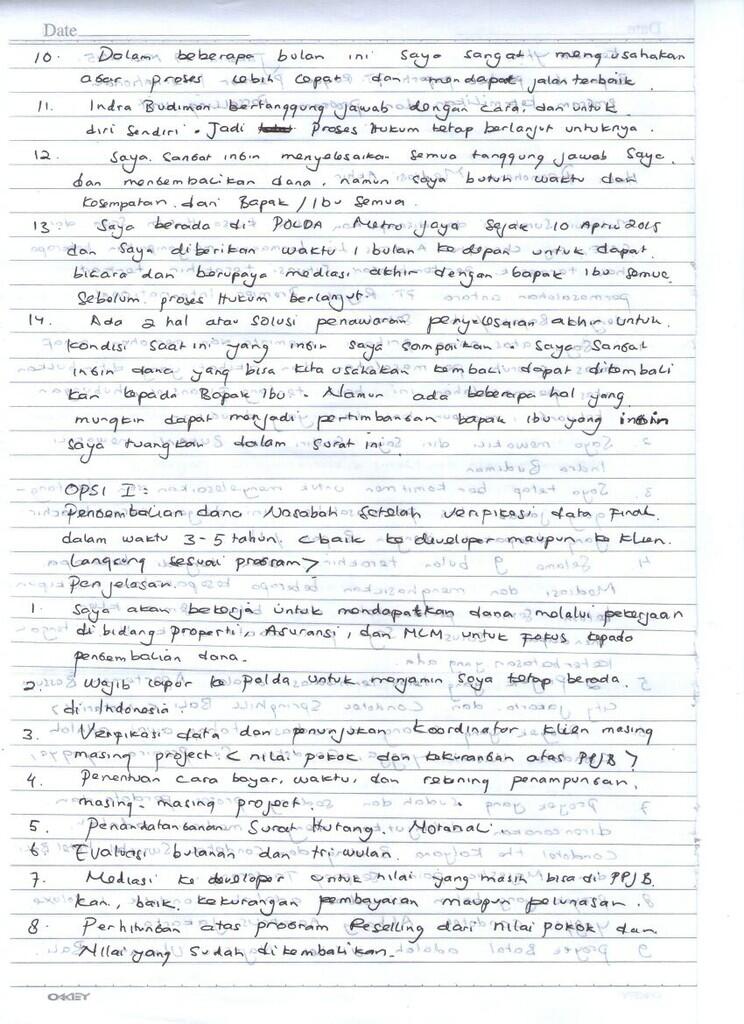 Date
10. Dalam beberapa bulan ini saya sangat mengusahakan
agar proses lebih cepat dan mendapat jalan terbaik
11. Indra Budiman bertanggung jawab dengan cara, dan untuk
diri sendiri. Jadi Proses Hukum tetap berlanjut untuknya.
12. Saya. Sangat ingin menyelesaikan semua tanggung jawab Saya.
dan mengembalikan dana, namun saya butuh waktu dan
kesempatan dari Bapak / Ibu semua.
13. Saya berada di POLDA Metro Jaya Sejak 10 April 2015
dan Saya diberikan waktu 1 bulan ke depan untuk dapat
bicara dan berupaya mediasi akhir dengan bapak ibu semua
Sebelum proses Hukum berlanjut
14. Ada 2 hal atau solusi penawaran penyelesaian akhir untuk
kondisi saat ini yang ingin saya sampaikan. Saya Sangat
ingin dana yang bisa kita usahakan kembali dapat dikembali
kan kepada Bapak Ibu. Namun ada beberapa hal yang
mungkin dapat menjadi pertimbangan bapak ibu yang ingin
saya tuangkan dalam surat ini.
OPSI I:
Pengembalian dana Nasabah setelah verifikasi data Final
dalam waktu 3-5 tahun. <baik ke developer maupun ke klien
langsung sesuai program>
Penjelasan.
1. Saya akan bekerja untuk mendapatkan dana melalui pekerjaan
di bidang properti, Asuransi, dan MLM untuk fokus kepada
pengembalian dana.
2. Wajib lapor ke Polda untuk menjamin saya tetap berada.
di Indonesia
3. Verifikasi data dan penunjukan Koordinator klien masing
masing project < nilai pokok dan kekurangan atas PPJB >
4. Penentuan cara bayar, waktu, dan rekening penampungan,
masing-masing project.
5. Penandatanganan Surat Hutang. Notarial.
6. Evaluasi bulanan dan triwulan.
7. Mediasi ke developer untuk nilai yang masih bisa di PPJB
kan, baik kekurangan pembayaran maupun pelunasan.
8. Perhitungan atas program Reselling dari nilai pokok dan
Nilai yang sudah dikembalikan.
OKEY